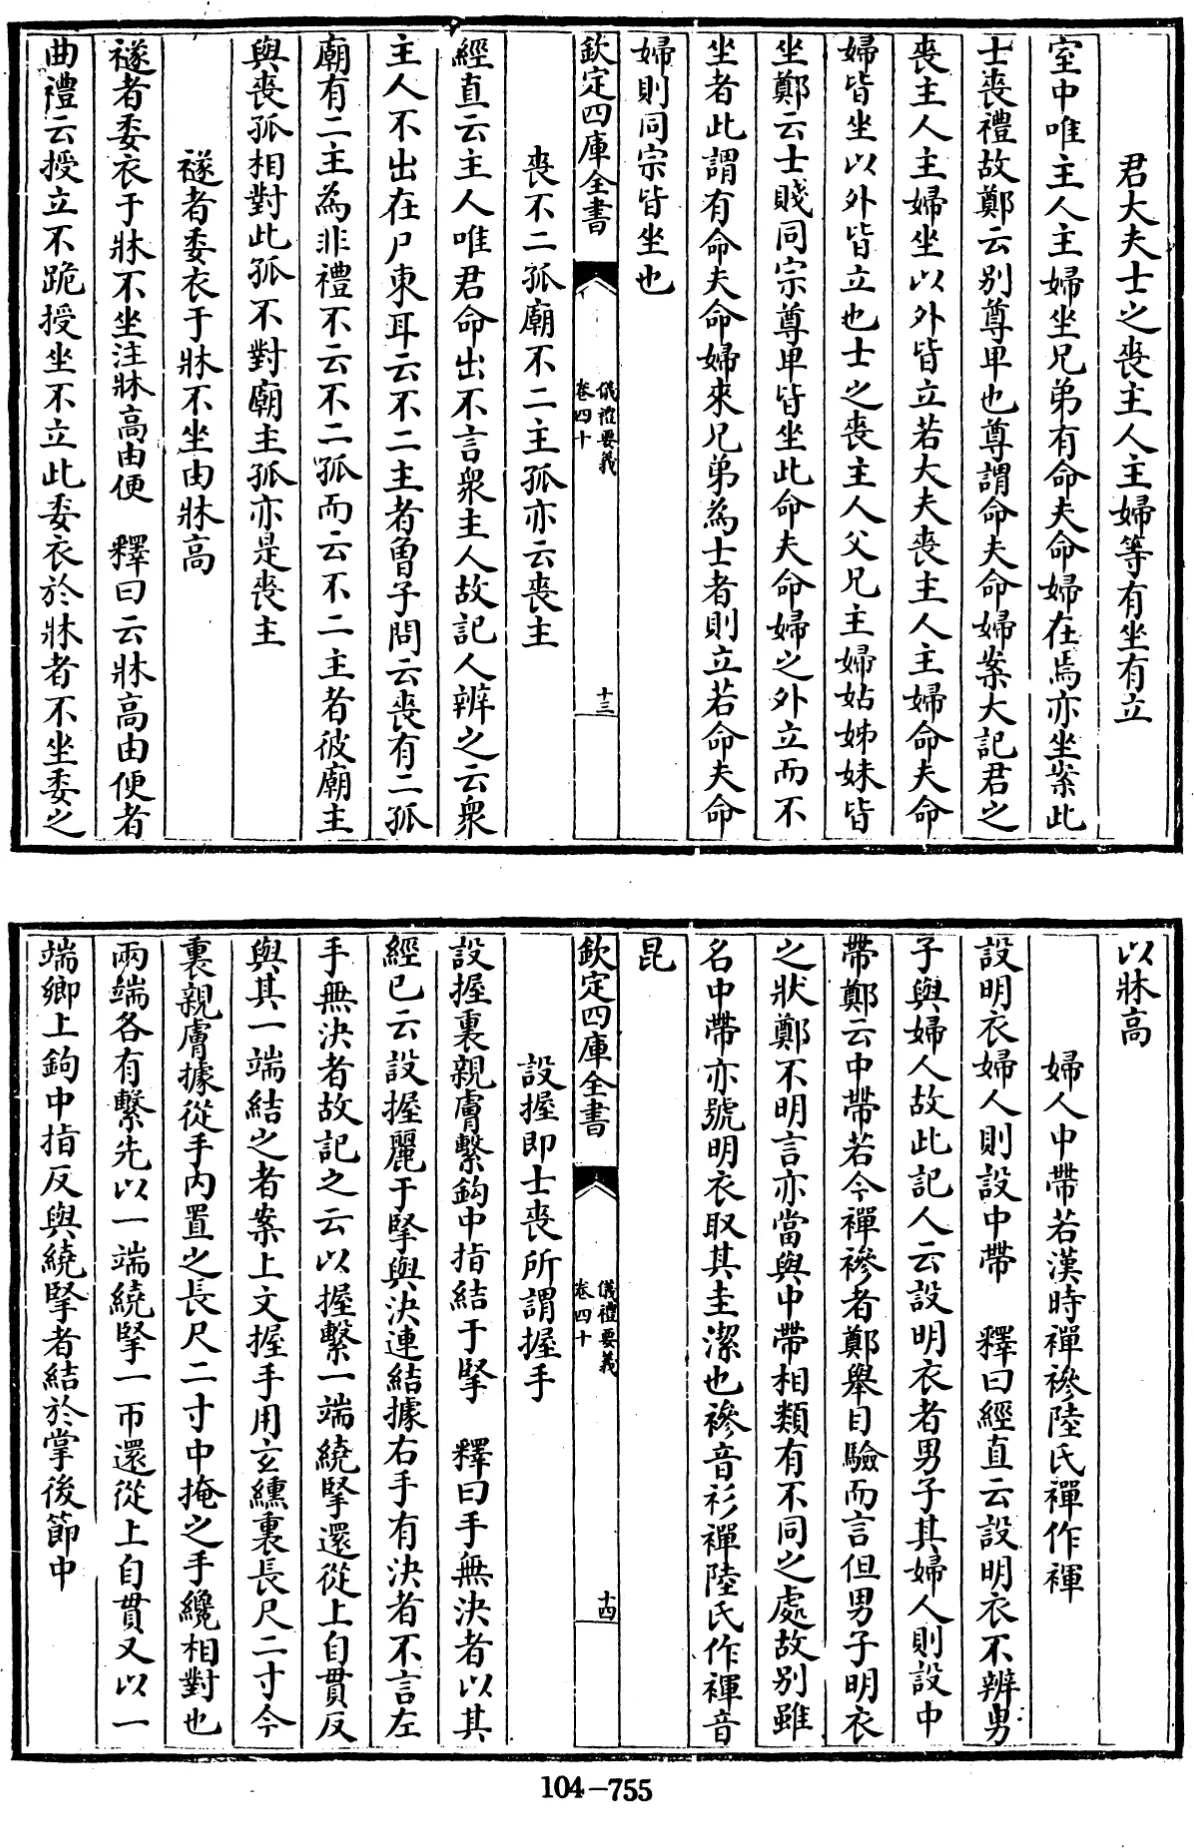 君大夫士之喪主人主婦等有坐有立
室中唯主人主婦坐兄弟有命夫命婦在焉亦坐案此
士喪禮故鄭云別尊卑也尊謂命夫命婦案大記君之
喪主人主婦坐以外皆立若大夫喪主人主婦命夫命
婦皆坐以外皆立也士之喪主人父兄主婦姑姊妹皆
坐鄭云士賤同宗尊卑皆坐此命夫命婦之外立而不
坐者此謂有命夫命婦來兄弟為士者則立若命夫命
婦則同宗皆坐也
欽定四庫全書
儀禮要義
卷四十
十三
喪不二孤廟不二主孤亦云喪主
經直云主人唯君命出不言衆主人故記人辨之云衆
主人不出在尸東耳云不二主者曾子問云喪有二孤
廟有二主為非禮不云不二孤而云不二主者彼廟主
與喪孤相對此孤不對廟主孤亦是喪主
襚者委衣于牀不坐由牀高
襚者委衣于牀不坐注牀高由便 釋曰云牀高由便者
曲禮云授立不跪授坐不立此委衣於牀者不坐委之
以牀高
婦人中帶若漢時襌襂陸氏襌作褌
設明衣婦人則設中帶 釋曰經直云設明衣不辨男
子與婦人故此記人云設明衣者男子其婦人則設中
帶鄭云中帶若今襌襂者鄭舉目驗而言但男子明衣
之狀鄭不明言亦當與中帶相類有不同之處故別雖
名中帶亦號明衣取其圭潔也襂音衫襌陸氏作褌音
昆
欽定四庫全書
儀禮要義
卷四十
十四
設握即士喪所謂握手
設握裏親膚繫鉤中指結于掔 釋曰手無決者以其
經已云設握麗于掔與決連結據右手有決者不言左
手無決者故記之云以握繫一端繞掔還從上自貫反
與其一端結之者案上文握手用玄纁裏長尺二寸今
裏親膚據從手內置之長尺二寸中掩之手纔相對也
兩端各有繫先以一端繞掔一帀還從上自貫又以一
端鄉上鉤中指反與繞掔者結於掌後節中
104-755